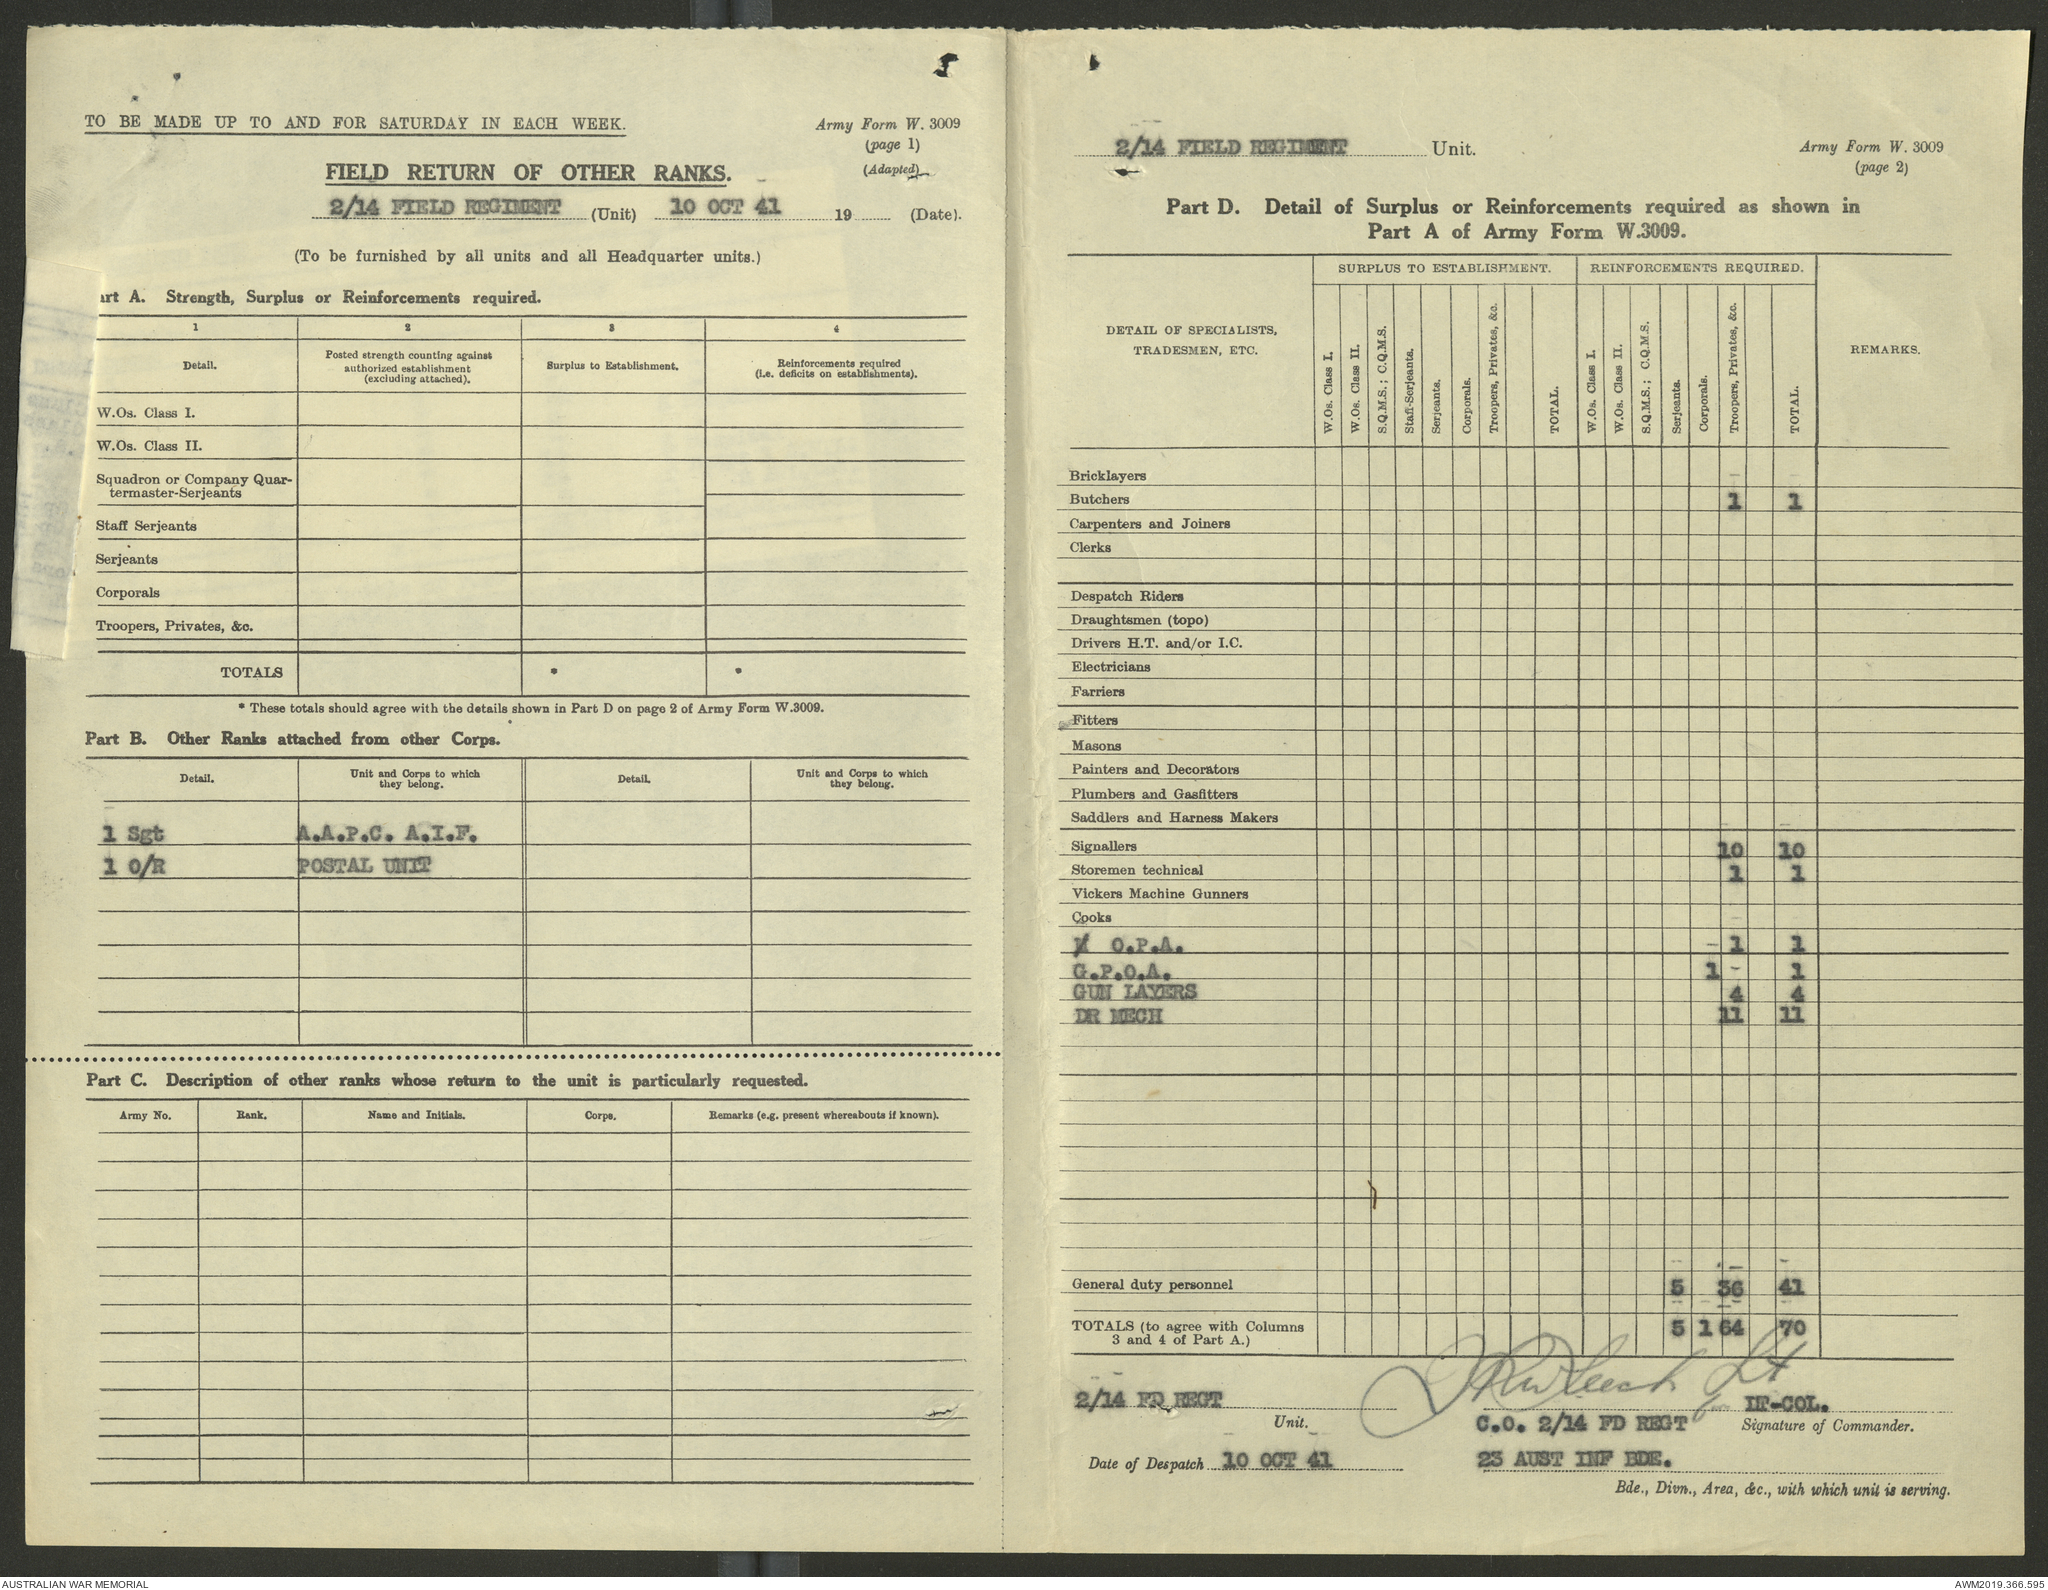 TO BE MADE UP TO AND FOR SATURDAY IN EACH WEEK.
Army Form W. 3009
(page 1)
(Adapted)
FIELD RETURN OF OTHER RANKS.
2/14 FIELD REGIMENT (Unit) 10 OCT 41 19 (Date).
(To be furnished by all units and all Headquarter units.)
art A. Strength, Surplus or Reinforcements required.
1 2 3 4
Detail. Posted strength counting against authorized establishment (excluding attached). Surplus to Establishment. Reinforcements required (i.e. deficits on establishments).
W.Os. Class I.
W.Os. Class II.
Squadron or Company Quar-
termaster-Serjeants
Staff Serjeants
Serjeants
Corporals
Troopers, Privates, &c.
TOTALS * *
* These totals should agree with the details shown in Part D on page 2 of Army Form W.3009.
Part B. Other Ranks attached from other Corps.
Detail. Unit and Corps to which they belong. Detail. Unit and Corps to which they belong.
1 Sgt A.A.P.C. A.I.F.
1 O/R POSTAL UNIT
Part C. Description of other ranks whose return to the unit is particularly requested.
Army No. Rank. Name and Initials. Corps. Remarks (e.g. present whereabouts if known).
2/14 FIELD REGIMENT Unit.
Army Form W. 3009
(page 2)
Part D. Detail of Surplus or Reinforcements required as shown in
Part A of Army Form W.3009.
DETAIL OF SPECIALISTS, TRADESMEN, ETC.
SURPLUS TO ESTABLISHMENT. REINFORCEMENTS REQUIRED.
W.Os. Class I. W.Os. Class II. S.Q.M.S.; C.Q.M.S. Staff-Serjeants. Serjeants. Corporals. Troopers, Privates, &c. TOTAL. W.Os. Class I. W.Os. Class II. S.Q.M.S.; C.Q.M.S. Serjeants. Corporals. Troopers, Privates, &c. TOTAL. REMARKS.
Bricklayers
Butchers 1 1
Carpenters and Joiners
Clerks
Despatch Riders
Draughtsmen (topo)
Drivers H.T. and/or I.C.
Electricians
Farriers
Fitters
Masons
Painters and Decorators
Plumbers and Gasfitters
Saddlers and Harness Makers
Signallers 10 10
Storemen technical 1 1
Vickers Machine Gunners
Cooks
O.P.A. 1 1
G.P.O.A. 1 1
GUN LAYERS 4 4
DR MECH 11 11
General duty personnel 5 36 41
TOTALS (to agree with Columns
3 and 4 of Part A.) 5 1 64 70
2/14 FD REGT
Unit.
Lt
for LT-COL.
C.O. 2/14 FD REGT Signature of Commander.
Date of Despatch 10 OCT 41
23 AUST INF BDE.
Bde., Divn., Area, &c., with which unit is serving.
AUSTRALIAN WAR MEMORIAL
AWM2019.366.595